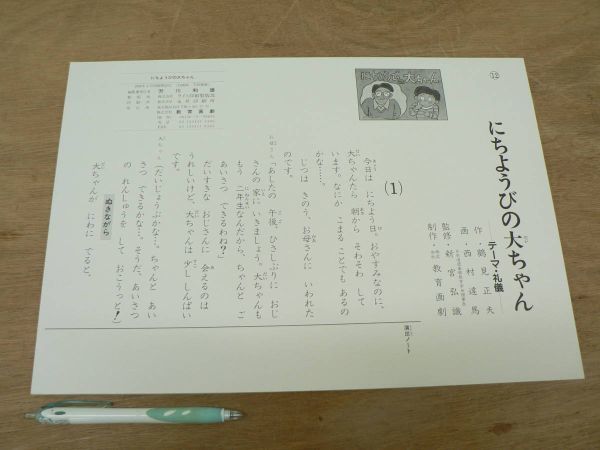 ⑫
にちようびの大ちゃん
にちようびの大ちゃん
テーマ・礼儀
作・鶴見正夫
画・西村達馬
監修・新宮弘識
制作・教育画劇
(1)
今日は にちよう日。おやすみなのに、
大ちゃんたら 朝から そわそわ して
います。なにか こまる ことでも あるの
かな……。
じつは きのう、お母さんに いわれた
のです。
お母さん「あしたの 午後、ひさしぶりに おじ
さんの 家に いきましょう。大ちゃんも
もう 二年生なんだから、ちゃんと ご
あいさつ できるわね？」
だいすきな おじさんに 会えるのは
うれしいけど、大ちゃんは 少し しんぱい
です。
大ちゃん（だいじょうぶかな…。ちゃんと あい
さつ できるかな…。そうだ、あいさつ
の れんしゅうを して おこうっと！）
ぬきながら
大ちゃんが にわに でると。
演出ノート
にちようびの大ちゃん
教育画劇